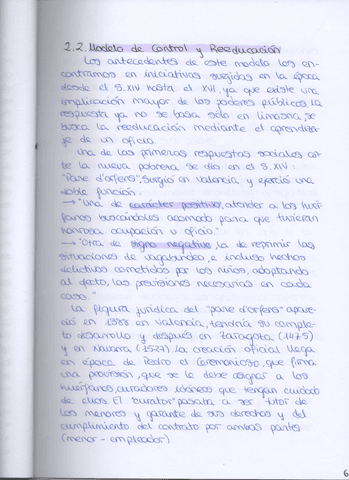 2.2. Modelo de Control y Reeducación
Los antecedentes de este modelo los en-
contramos en iniciativas surgidas en la época
desde el S.XIV hasta el XVI, ya que existe una
implicación mayor de los poderes públicos. La
respuesta ya no se basa sólo en limosna, se
busca la reeducación mediante el aprendiza-
je de un oficio.
Una de las primeras respuestas sociales an-
te la nueva pobreza se dió en el S.XIV.
"Pare d'orfens", surgió en Valencia y ejerció una
doble función.
→ "Una de carácter positivo, atender a los huér-
fanos buscándoles acomodo para que tuvieran
honrosa ocupación u oficio."
→ "Otra de signo negativo, la de reprimir las
situaciones de vagabundeo, e incluso hechos
delictivos cometidos por los niños, adoptando
al efecto, las previsiones necesarias en cada
caso."
La figura jurídica del "pare d'orfens" apare-
ció en 1388 en Valencia, tendría su comple-
to desarrollo y después en Zaragoza (1475)
y en Navarra (1527). La creación oficial llega
en época de Pedro el Ceremonioso, que firma
una provisión, que se le debe asignar a los
huérfanos, curadores idóneos que tengan cuidado
de ellos. El "curator" pasaba a ser tutor de
los menores y garante de sus derechos y del
cumplimiento del contrato por ambas partes
(menor - empleador)
6